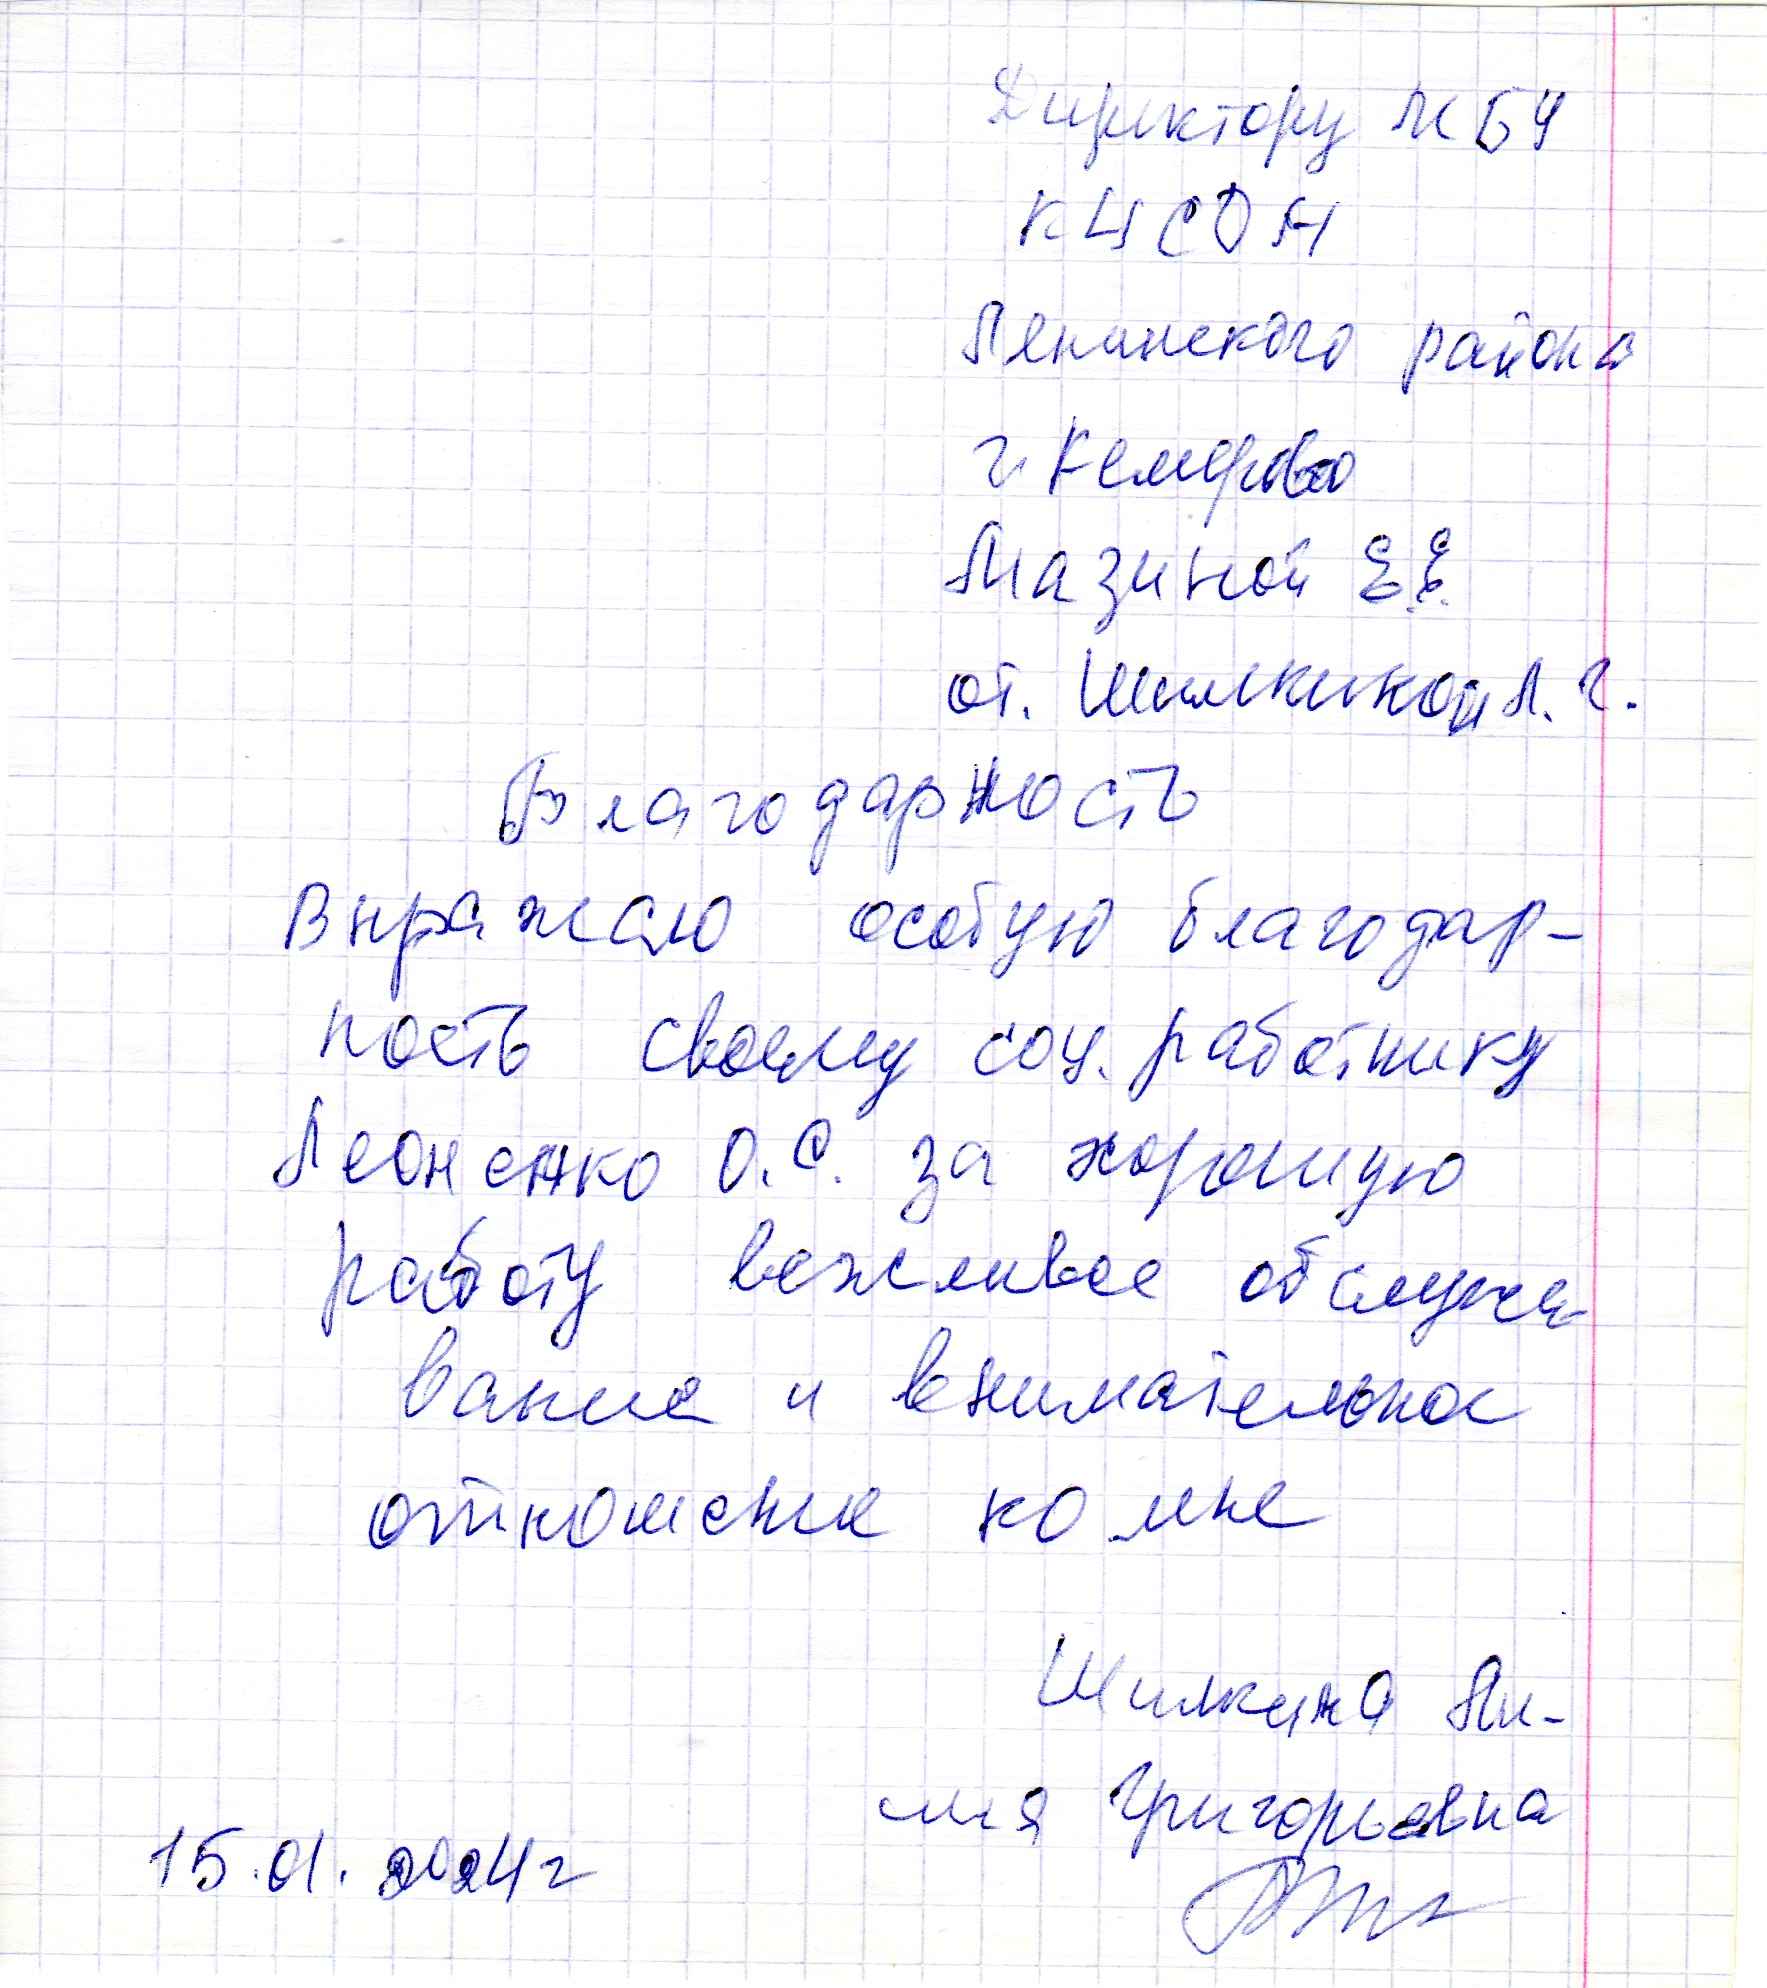 Директору МБУ
КЦСОН
Ленинского района
г. Кемерово
Мазиной Е.Е.
от. Шилкиной Л. Г.
Благодарность
Выражаю особую благодар-
ность своему соц. работнику
Леоненко О.С. за хорошую
работу вежливое обслужи-
вание и внимательное
отношение ко мне
Шилкина Ли-
лия Григорьевна
15.01.2024г